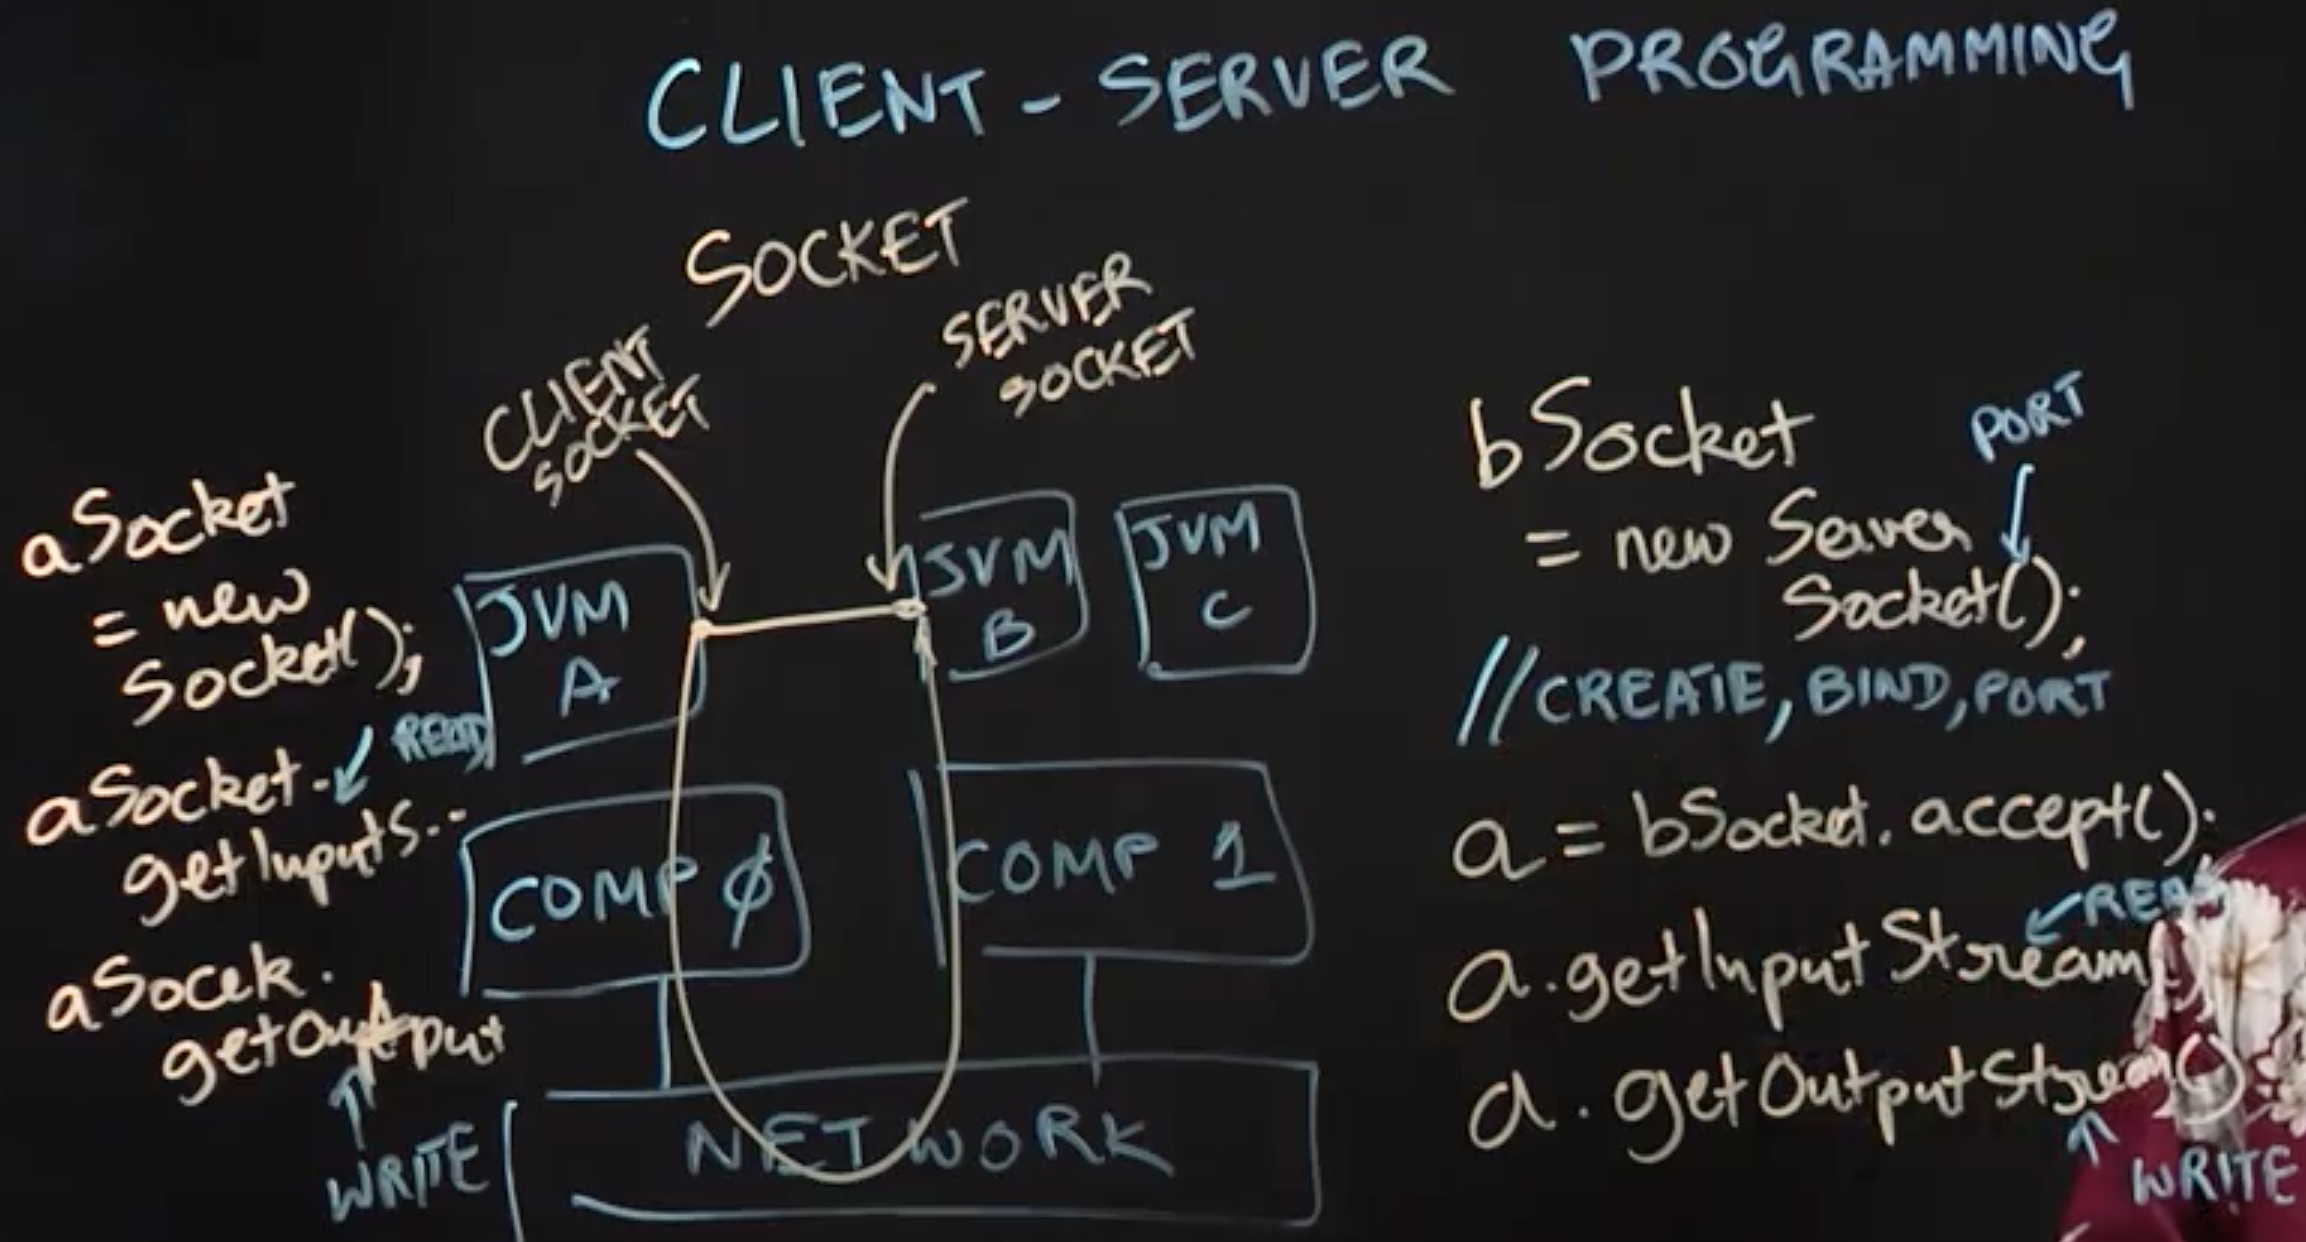 CLIENT - SERVER PROGRAMMING
SOCKET
CLIENT
SOCKET
SERVER
SOCKET
aSocket
= new
Socket();
READ
aSocket.
getInputS..
aSocek.
getOutput
WRITE
JVM
A
JVM
B
JVM
C
COMP 0
COMP 1
NETWORK
bSocket
PORT
= new Server
Socket();
//CREATE, BIND, PORT
a = bSocket.accept();
READ
a.getInputStream()
a.getOutputStream()
WRITE